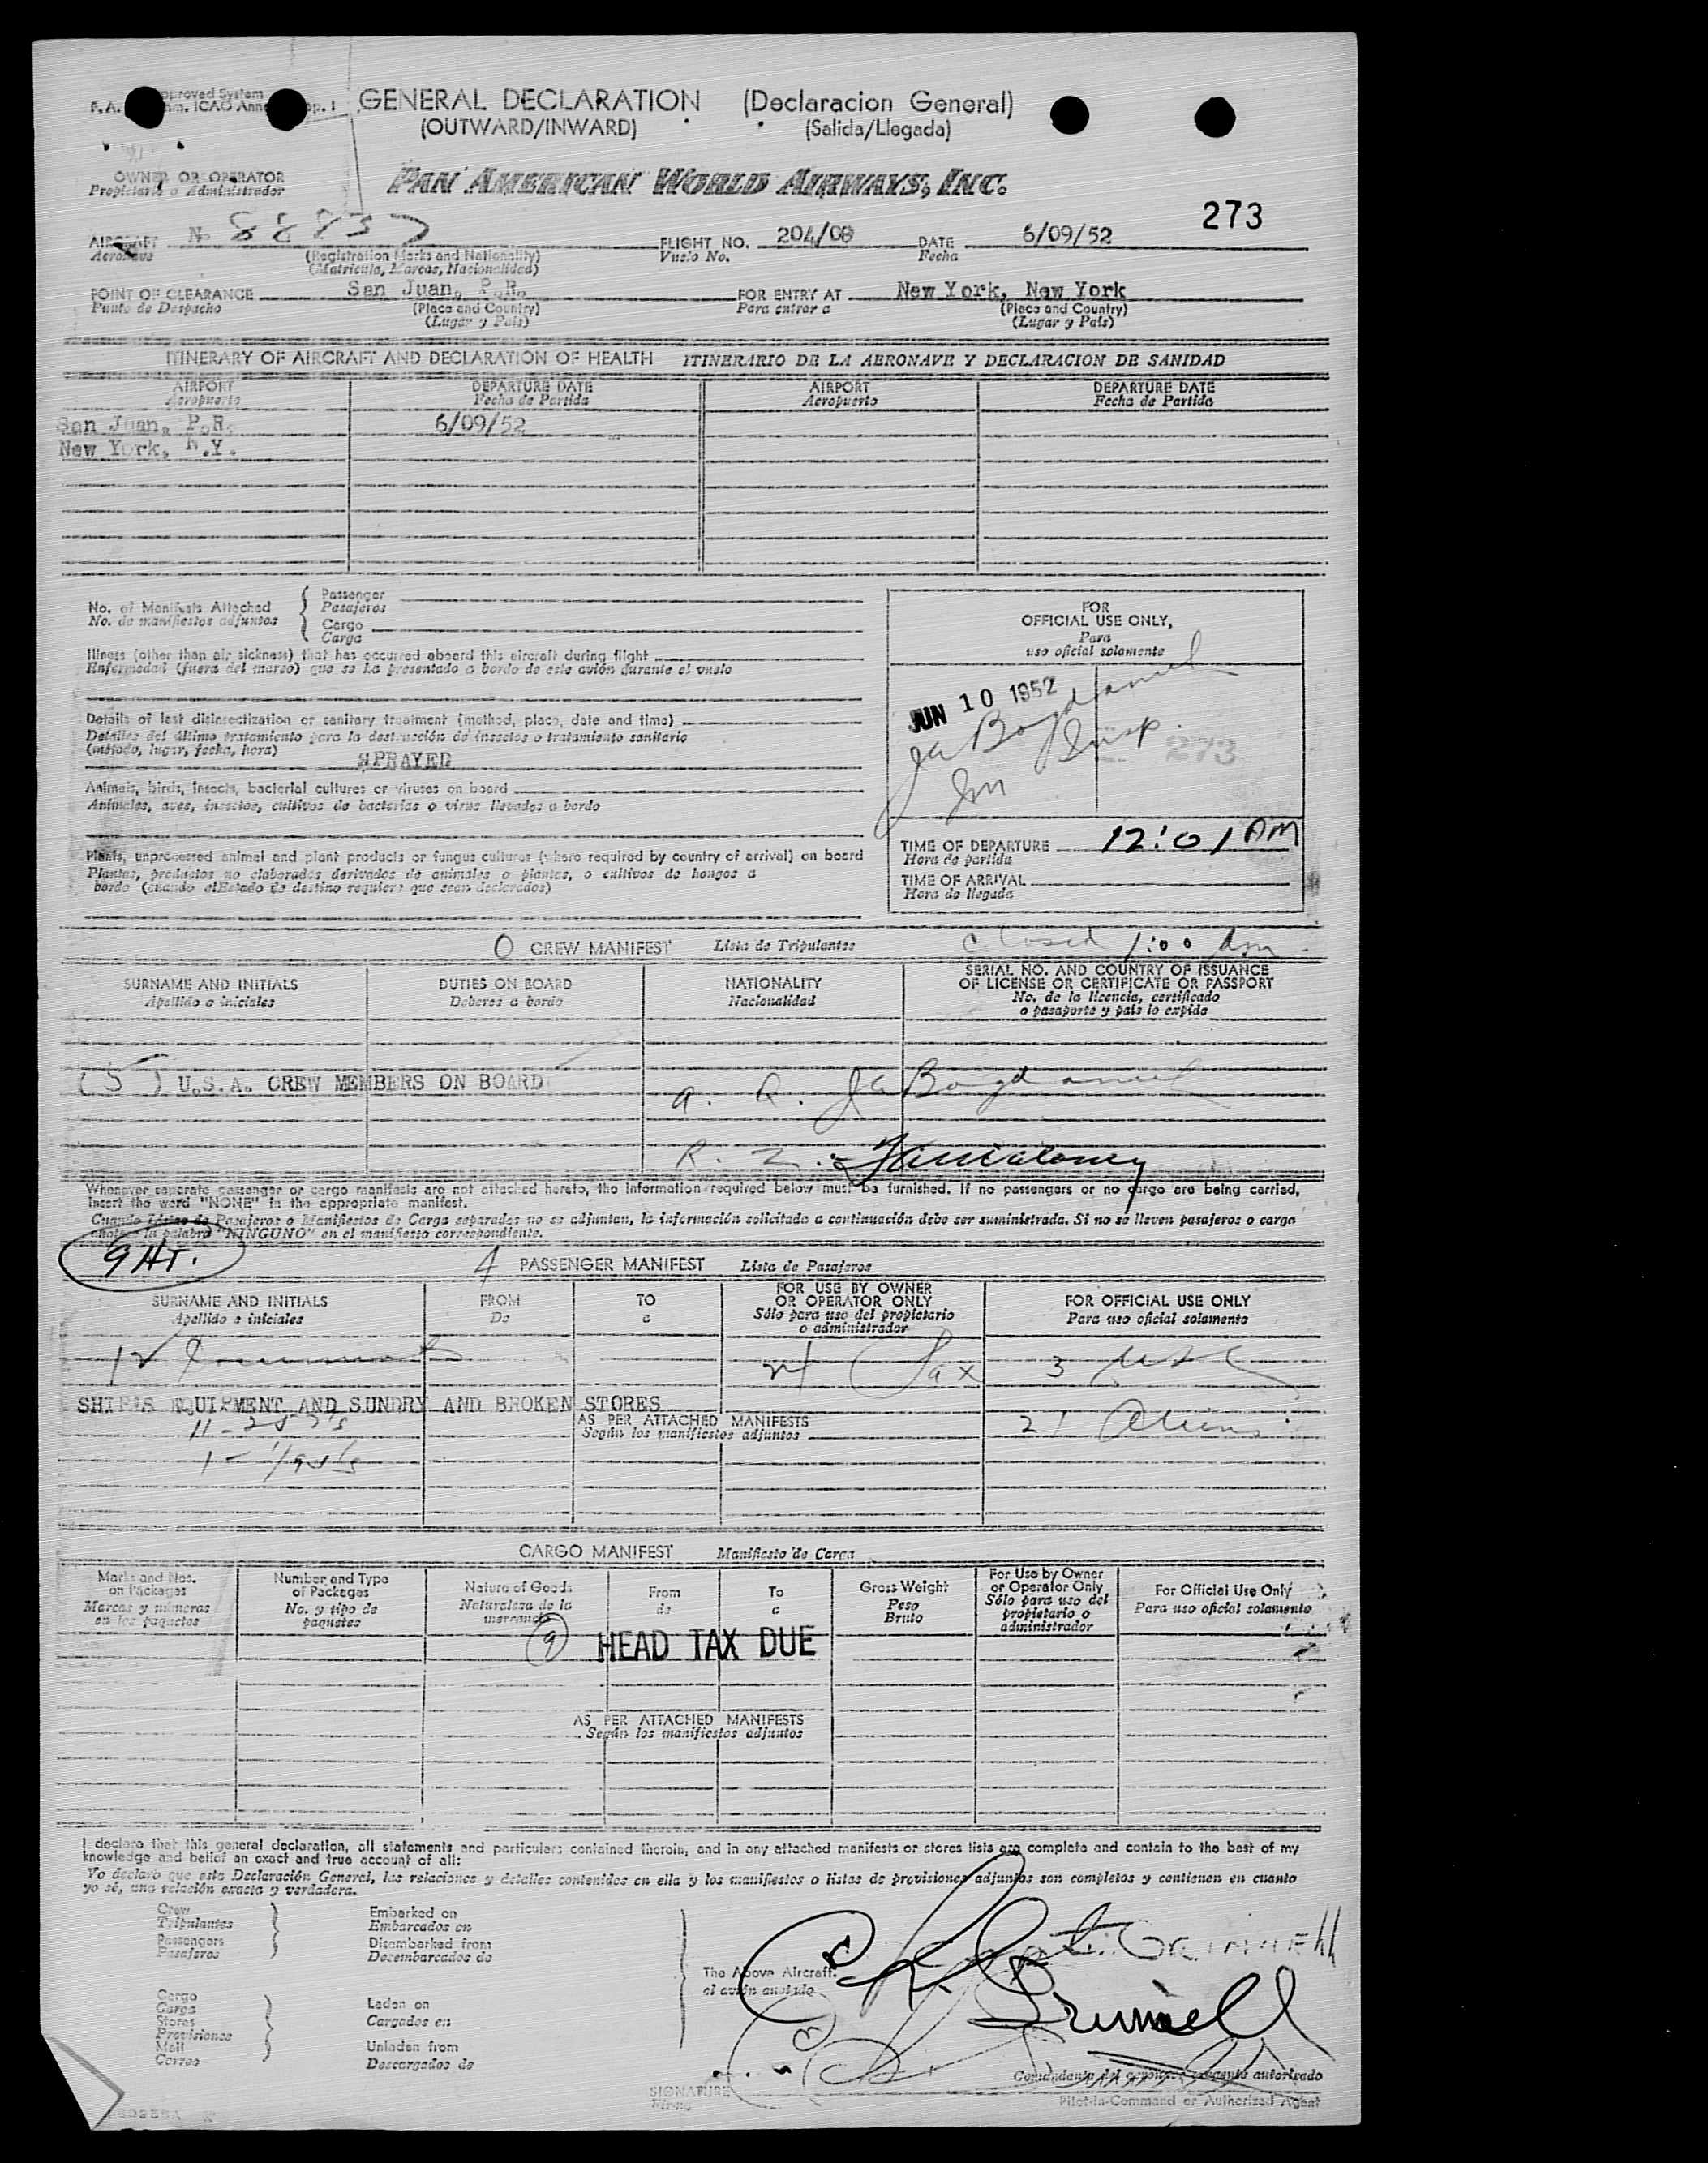 GENERAL DECLARATION (Declaracion General)
(OUTWARD/INWARD) (Salida/Llegada)
OWNER OR OPERATOR
Propietario o Administrador
PAN AMERICAN WORLD AIRWAYS, INC.
273
AIRCRAFT N 88837 FLIGHT NO. 204/08 DATE 6/09/52
Aeronave (Registration Marks and Nationality) Vuelo No. Fecha
(Matricula, Marcas, Nacionalidad)
POINT OF CLEARANCE San Juan, P.R. FOR ENTRY AT New York, New York
Punto de Despacho (Place and Country) Para entrar a (Place and Country)
(Lugar y País) (Lugar y País)
ITINERARY OF AIRCRAFT AND DECLARATION OF HEALTH ITINERARIO DE LA AERONAVE Y DECLARACION DE SANIDAD
AIRPORT DEPARTURE DATE AIRPORT DEPARTURE DATE
Aeropuerto Fecha de Partida Aeropuerto Fecha de Partida
San Juan, P.R. 6/09/52
New York, N.Y.
No. of Manifests Attached
No. de manifiestos adjuntos
Passenger
Pasajeros
Cargo
Carga
Illness (other than air sickness) that has occurred aboard this aircraft during flight
Enfermedad (fuera del mareo) que se ha presentado a bordo de este avión durante el vuelo
Details of last disinsectization or sanitary treatment (method, place, date and time)
Detalles del último tratamiento para la destrucción de insectos o tratamiento sanitario
(método, lugar, fecha, hora)
SPRAYED
Animals, birds, insects, bacterial cultures or viruses on board
Animales, aves, insectos, cultivos de bacterias o virus llevados a bordo
Plants, unprocessed animal and plant products or fungus cultures (where required by country of arrival) on board
Plantas, productos no elaborados derivados de animales o plantas, o cultivos de hongos a
bordo (cuando el Estado de destino requiere que sean declarados)
FOR
OFFICIAL USE ONLY,
Para
uso oficial solamente
JUN 10 1952
Insp.
273
TIME OF DEPARTURE 12:01 AM
Hora de partida
TIME OF ARRIVAL
Hora de llegada
closed 1:00 Am
0 CREW MANIFEST Lista de Tripulantes
SURNAME AND INITIALS DUTIES ON BOARD NATIONALITY SERIAL NO. AND COUNTRY OF ISSUANCE
OF LICENSE OR CERTIFICATE OR PASSPORT
Apellido e iniciales Deberes a bordo Nacionalidad No. de la licencia, certificado
o pasaporte y país lo expide
(5) U.S.A. CREW MEMBERS ON BOARD
Whenever separate passenger or cargo manifests are not attached hereto, the information required below must be furnished. If no passengers or no cargo are being carried,
insert the word "NONE" in the appropriate manifest.
Cuando Listas de Pasajeros o Manifiestos de Carga separados no se adjuntan, la información solicitada a continuación debe ser suministrada. Si no se lleven pasajeros o carga
anotar la palabra "NINGUNO" en el manifiesto correspondiente.
9 HT.
4 PASSENGER MANIFEST Lista de Pasajeros
SURNAME AND INITIALS FROM TO FOR USE BY OWNER OR OPERATOR ONLY FOR OFFICIAL USE ONLY
Apellido e iniciales De a Sólo para uso del propietario o administrador Para uso oficial solamente
Pax 3 USC
SHIP'S EQUIPMENT AND SUNDRY AND BROKEN STORES
AS PER ATTACHED MANIFESTS
Según los manifiestos adjuntos
21 Aliens
CARGO MANIFEST Manifiesto de Carga
Marks and Nos. on Packages
Marcas y números en los paquetes
Number and Type of Packages
No. y tipo de paquetes
Nature of Goods
Naturaleza de la mercancía
From
de
To
a
Gross Weight
Peso Bruto
For Use by Owner or Operator Only
Sólo para uso del propietario o administrador
For Official Use Only
Para uso oficial solamente
(9) HEAD TAX DUE
AS PER ATTACHED MANIFESTS
Según los manifiestos adjuntos
I declare that this general declaration, all statements and particulars contained therein, and in any attached manifests or stores lists are complete and contain to the best of my
knowledge and belief an exact and true account of all:
Yo declaro que esta Declaración General, las relaciones y detalles contenidos en ella y los manifiestos o listas de provisiones adjuntos son completos y contienen en cuanto
yo sé, una relación exacta y verdadera.
Crew
Tripulantes
Passengers
Pasajeros
Embarked on
Embarcados en
Disembarked from
Desembarcados de
Cargo
Carga
Stores
Provisiones
Mail
Correo
Laden on
Cargados en
Unladen from
Descargados de
The Above Aircraft.
el avión anotado
SIGNATURE
Firma
Comandante del aeronave o agente autorizado
Pilot-in-Command or Authorized Agent